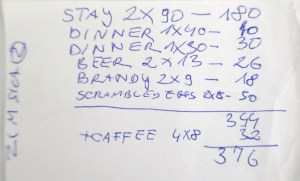 STAY 2X90 - 180
DINNER 1X40 - 40
DINNER 1X30 - 30
BEER 2X13 - 26
BRANDY 2X9 - 18
SCRAMBLED EGGS 2X25 - 50
344
+CAFFEE 4X8 32
376